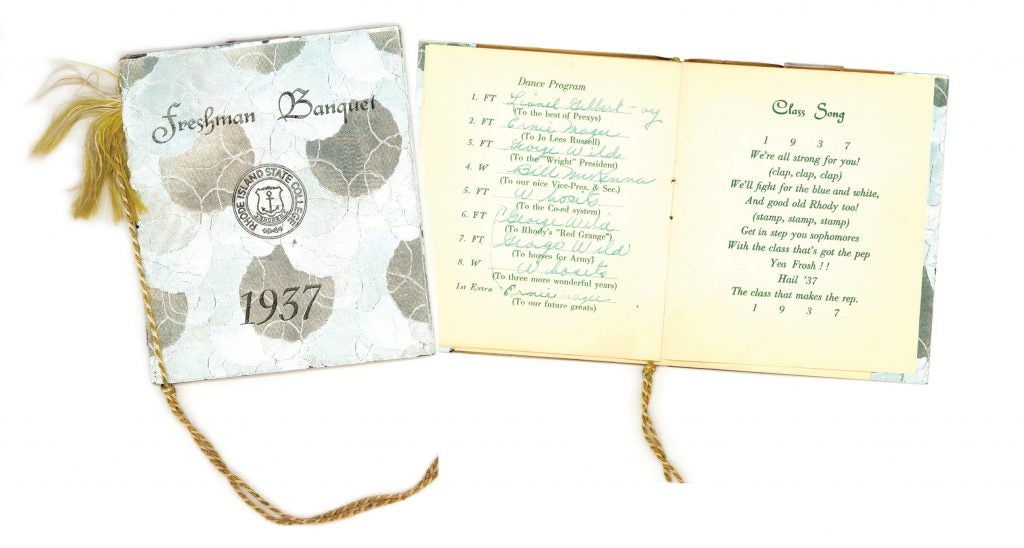 Freshman Banquet
RHODE ISLAND STATE COLLEGE
1937
Dance Program
1. FT Lionel Gilbert - oy
(To the best of Prexys)
2. FT Ernie Magee
(To Jo Lees Russell)
3. FT George Wild
(To the "Wright" President)
4. W Bill McKenna
(To our nice Vice-Pres. & Sec.)
5. FT W hosits
(To the Co-ed system)
6. FT George Wild
(To Rhody's "Red Grange")
7. FT George Wild
(To horses for Army)
8. W W hosits
(To three more wonderful years)
1st Extra Ernie magee
(To our future greats)
Class Song
1 9 3 7
We're all strong for you!
(clap, clap, clap)
We'll fight for the blue and white,
And good old Rhody too!
(stamp, stamp, stamp)
Get in step you sophomores
With the class that's got the pep
Yea Frosh ! !
Hail '37
The class that makes the rep.
1 9 3 7